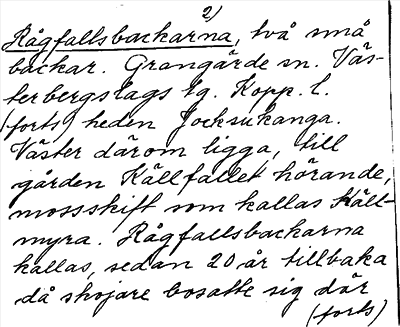 2)
Rågfallsbackarna, två små
backar. Grangärde sn. Väs-
terbergslags tg. Kopp. l.
(forts) heden Jocksukanga.
Väster därom ligga, till
gården Källfallet hörande,
mossskift som kallas Käll-
myra. Rågfallsbackarna
kallas, sedan 20 år tillbaka
då skojare bosatte sig där
(forts)